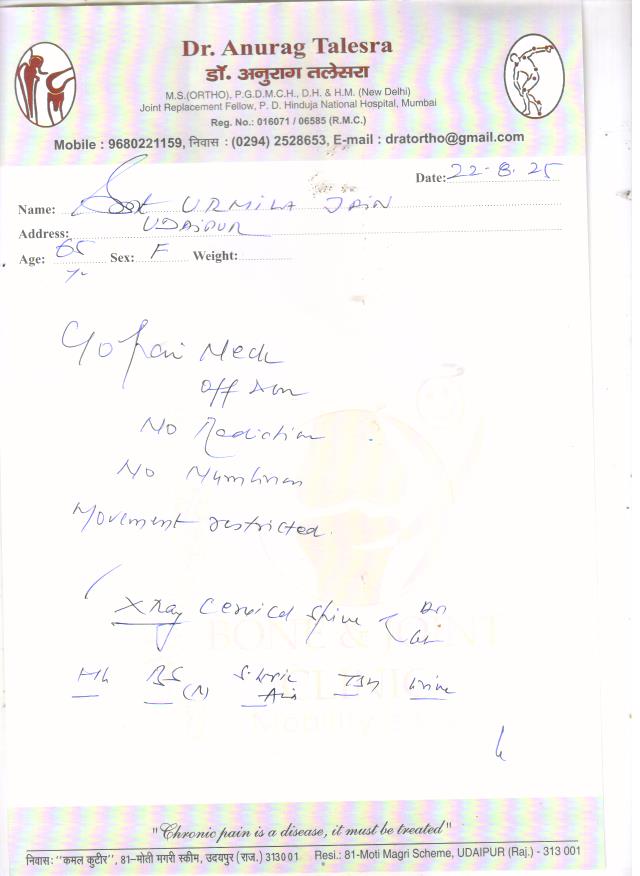 Dr. Anurag Talesra
डॉ. अनुराग तलेसरा
M.S.(ORTHO), P.G.D.M.C.H., D.H. & H.M. (New Delhi)
Joint Replacement Fellow, P. D. Hinduja National Hospital, Mumbai
Reg. No.: 016071 / 06585 (R.M.C.)
Mobile : 9680221159, निवास : (0294) 2528653, E-mail : dratortho@gmail.com
Date: 22-8-25
Name: URMILA JAIN
Address: UDAIPUR
Age: 65 Sex: F Weight:
C/o Pain Neck
off &
No Radiation
No Numbness
Movement restricted.
X Ray Cervical Spine
Hb BS S. Uric TSH Urine
(R) Acid
BONE & JOINT
CLINIC
Mobility
"Chronic pain is a disease, it must be treated"
निवास: "कमल कुटीर", 81-मोती मगरी स्कीम, उदयपुर (राज.) 313001 Resi.: 81-Moti Magri Scheme, UDAIPUR (Raj.) - 313 001